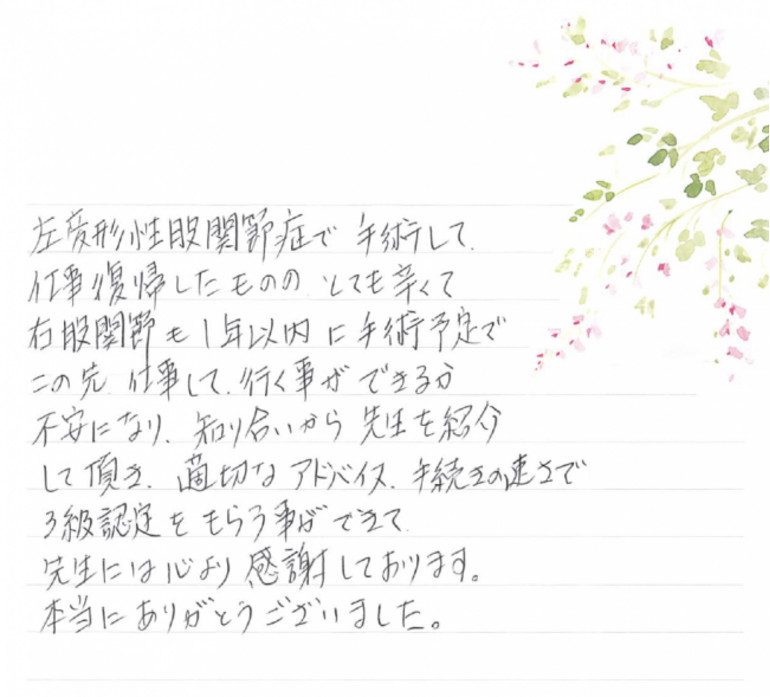 左変形性股関節症で 手術して、
仕事復帰したものの とても辛くて
右股関節も1年以内に手術予定で
この先、仕事して、行く事ができるか
不安になり、知り合いから先生を紹介
して頂き、適切なアドバイス、手続きの速さで
3級認定をもらう事ができて
先生には心より感謝しております。
本当にありがとうございました。